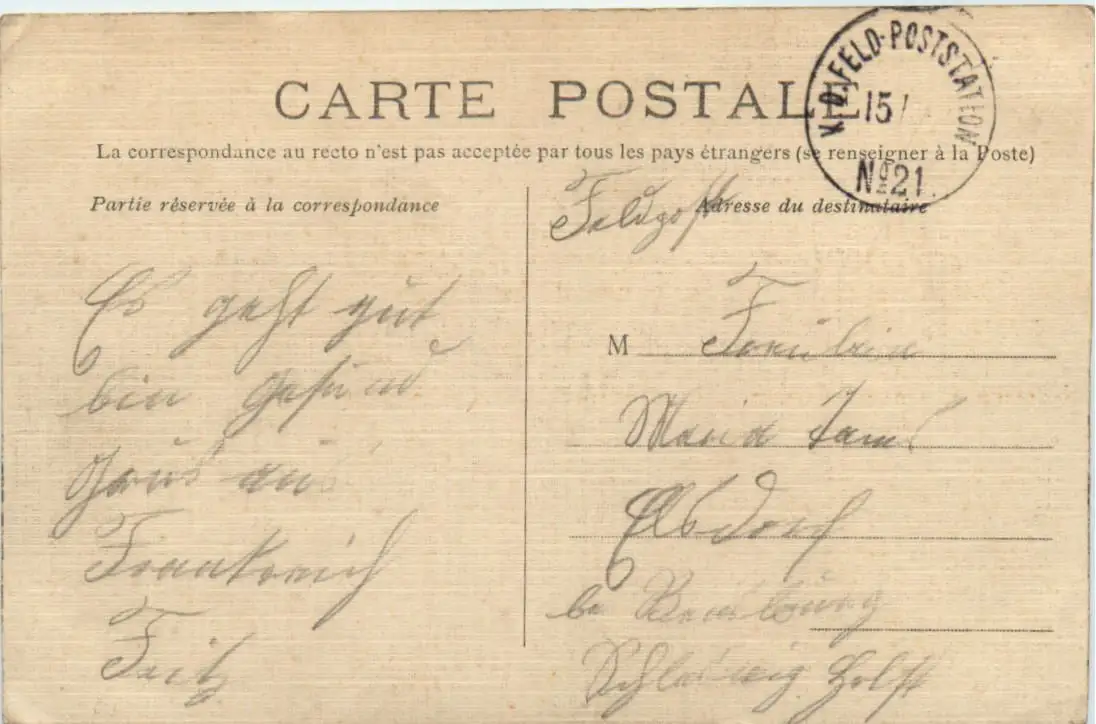 CARTE POSTALE
K.D. FELD-POSTSTATION
15
No 21.
La correspondance au recto n'est pas acceptée par tous les pays étrangers (se renseigner à la Poste)
Partie réservée à la correspondance
Es geht gut
bin gesund
Grus aus
Frankreich
Fritz
Adresse du destinataire
Feldpost
M Fräulein
Maria
Elsdorf
bei Rendsburg
Schleswig Holst